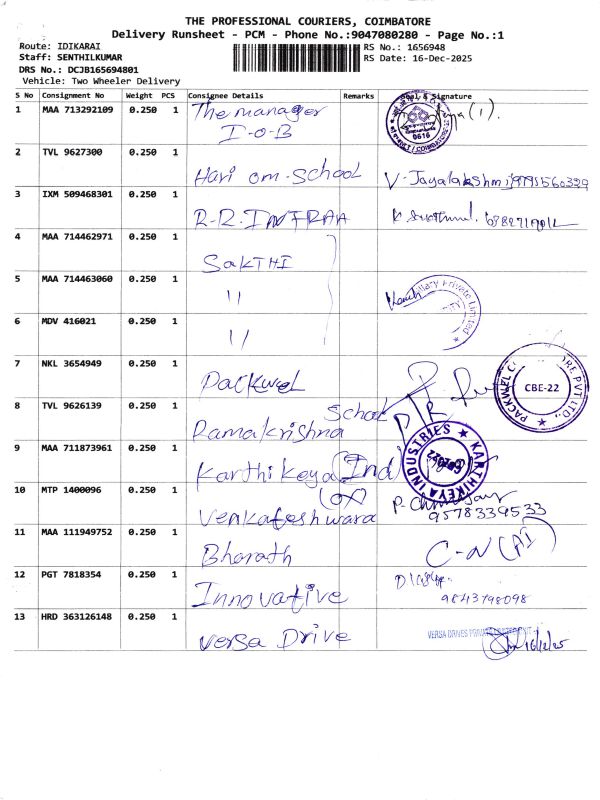 THE PROFESSIONAL COURIERS, COIMBATORE
Delivery Runsheet - PCM - Phone No.:9047080280 - Page No.:1
Route: IDIKARAI
RS No.: 1656948
Staff: SENTHILKUMAR
RS Date: 16-Dec-2025
DRS No.: DCJB165694801
Vehicle: Two Wheeler Delivery
S No Consignment No Weight PCS Consignee Details Remarks Seal & Signature
1 MAA 713292109 0.250 1 The manager
I-O-B
2 TVL 9627300 0.250 1
Hari om-School V-Jayalakshmi
3 IXM 509468301 0.250 1
R-R.INFRAA
4 MAA 714462971 0.250 1
SAKTHI
5 MAA 714463060 0.250 1
"
6 MDV 416021 0.250 1
"
7 NKL 3654949 0.250 1
Packwel
CBE-22
8 TVL 9626139 0.250 1 School
Ramakrishna
9 MAA 711873961 0.250 1
Karthikeya (Ind)
KARTHIKEYA INDUSTRIES
10 MTP 1400096 0.250 1
Venkateshwara
9578339533
11 MAA 111949752 0.250 1
Bharath
12 PGT 7818354 0.250 1
Innovative 9843798098
13 HRD 363126148 0.250 1
Versa Drive
16/12/25